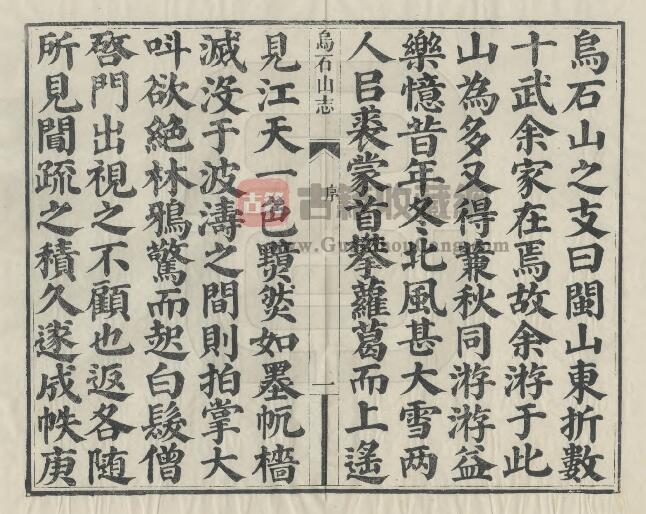 烏石山之支曰閩山東折數
十武余家在焉故余游于此
山為多又得蒹秋同游游益
樂憶昔年冬北風甚大雪两
人㠯裘蒙首攀蘿葛而上遙
烏石山志
序
一
見江天一色黯然如墨帆檣
滅没于波濤之間則拍掌大
叫欲絶林鴉驚而起白髮僧
啓門出視之不顧也返各随
所見聞疏之積久遂成帙庚
古籍收藏網